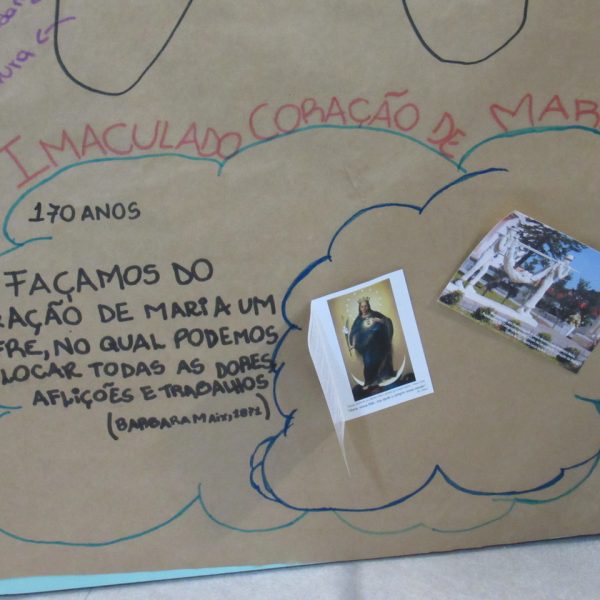 IMACULADO CORAÇÃO DE MAR
170 ANOS
FAÇAMOS DO
RAÇÃO DE MARIA UM
FRE, NO QUAL PODEMOS
LOCAR TODAS AS DORES,
AFLIÇÕES E TRABALHOS
(BARBARA MAIX, 1871)